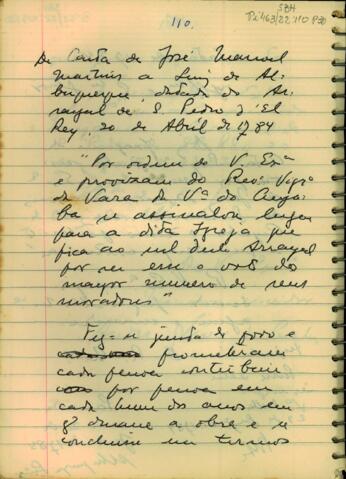 110.
SBH
Pi 463/22.110 P30
De Carta de José Manoel
Martins a Luiz de Al-
buquerque, datada do Ar-
rayal de S. Pedro d'El
Rey, 20 de Abril de 1784
"Por ordem de V. Exª
e provizam do Revº Vigrº
da Vara da Vª do Cuya-
bá se assinalou lugar
para a dita Igreja que
fica ao sul deste Arrayal
por ser esse o voto do
mayor numero de seus
moradores"
Fez-se junta de povo e
prometeram
cada pessoa contribuir
por pessoa em
cada hum dos anos em
q durare a obra e se
concluiu um termos